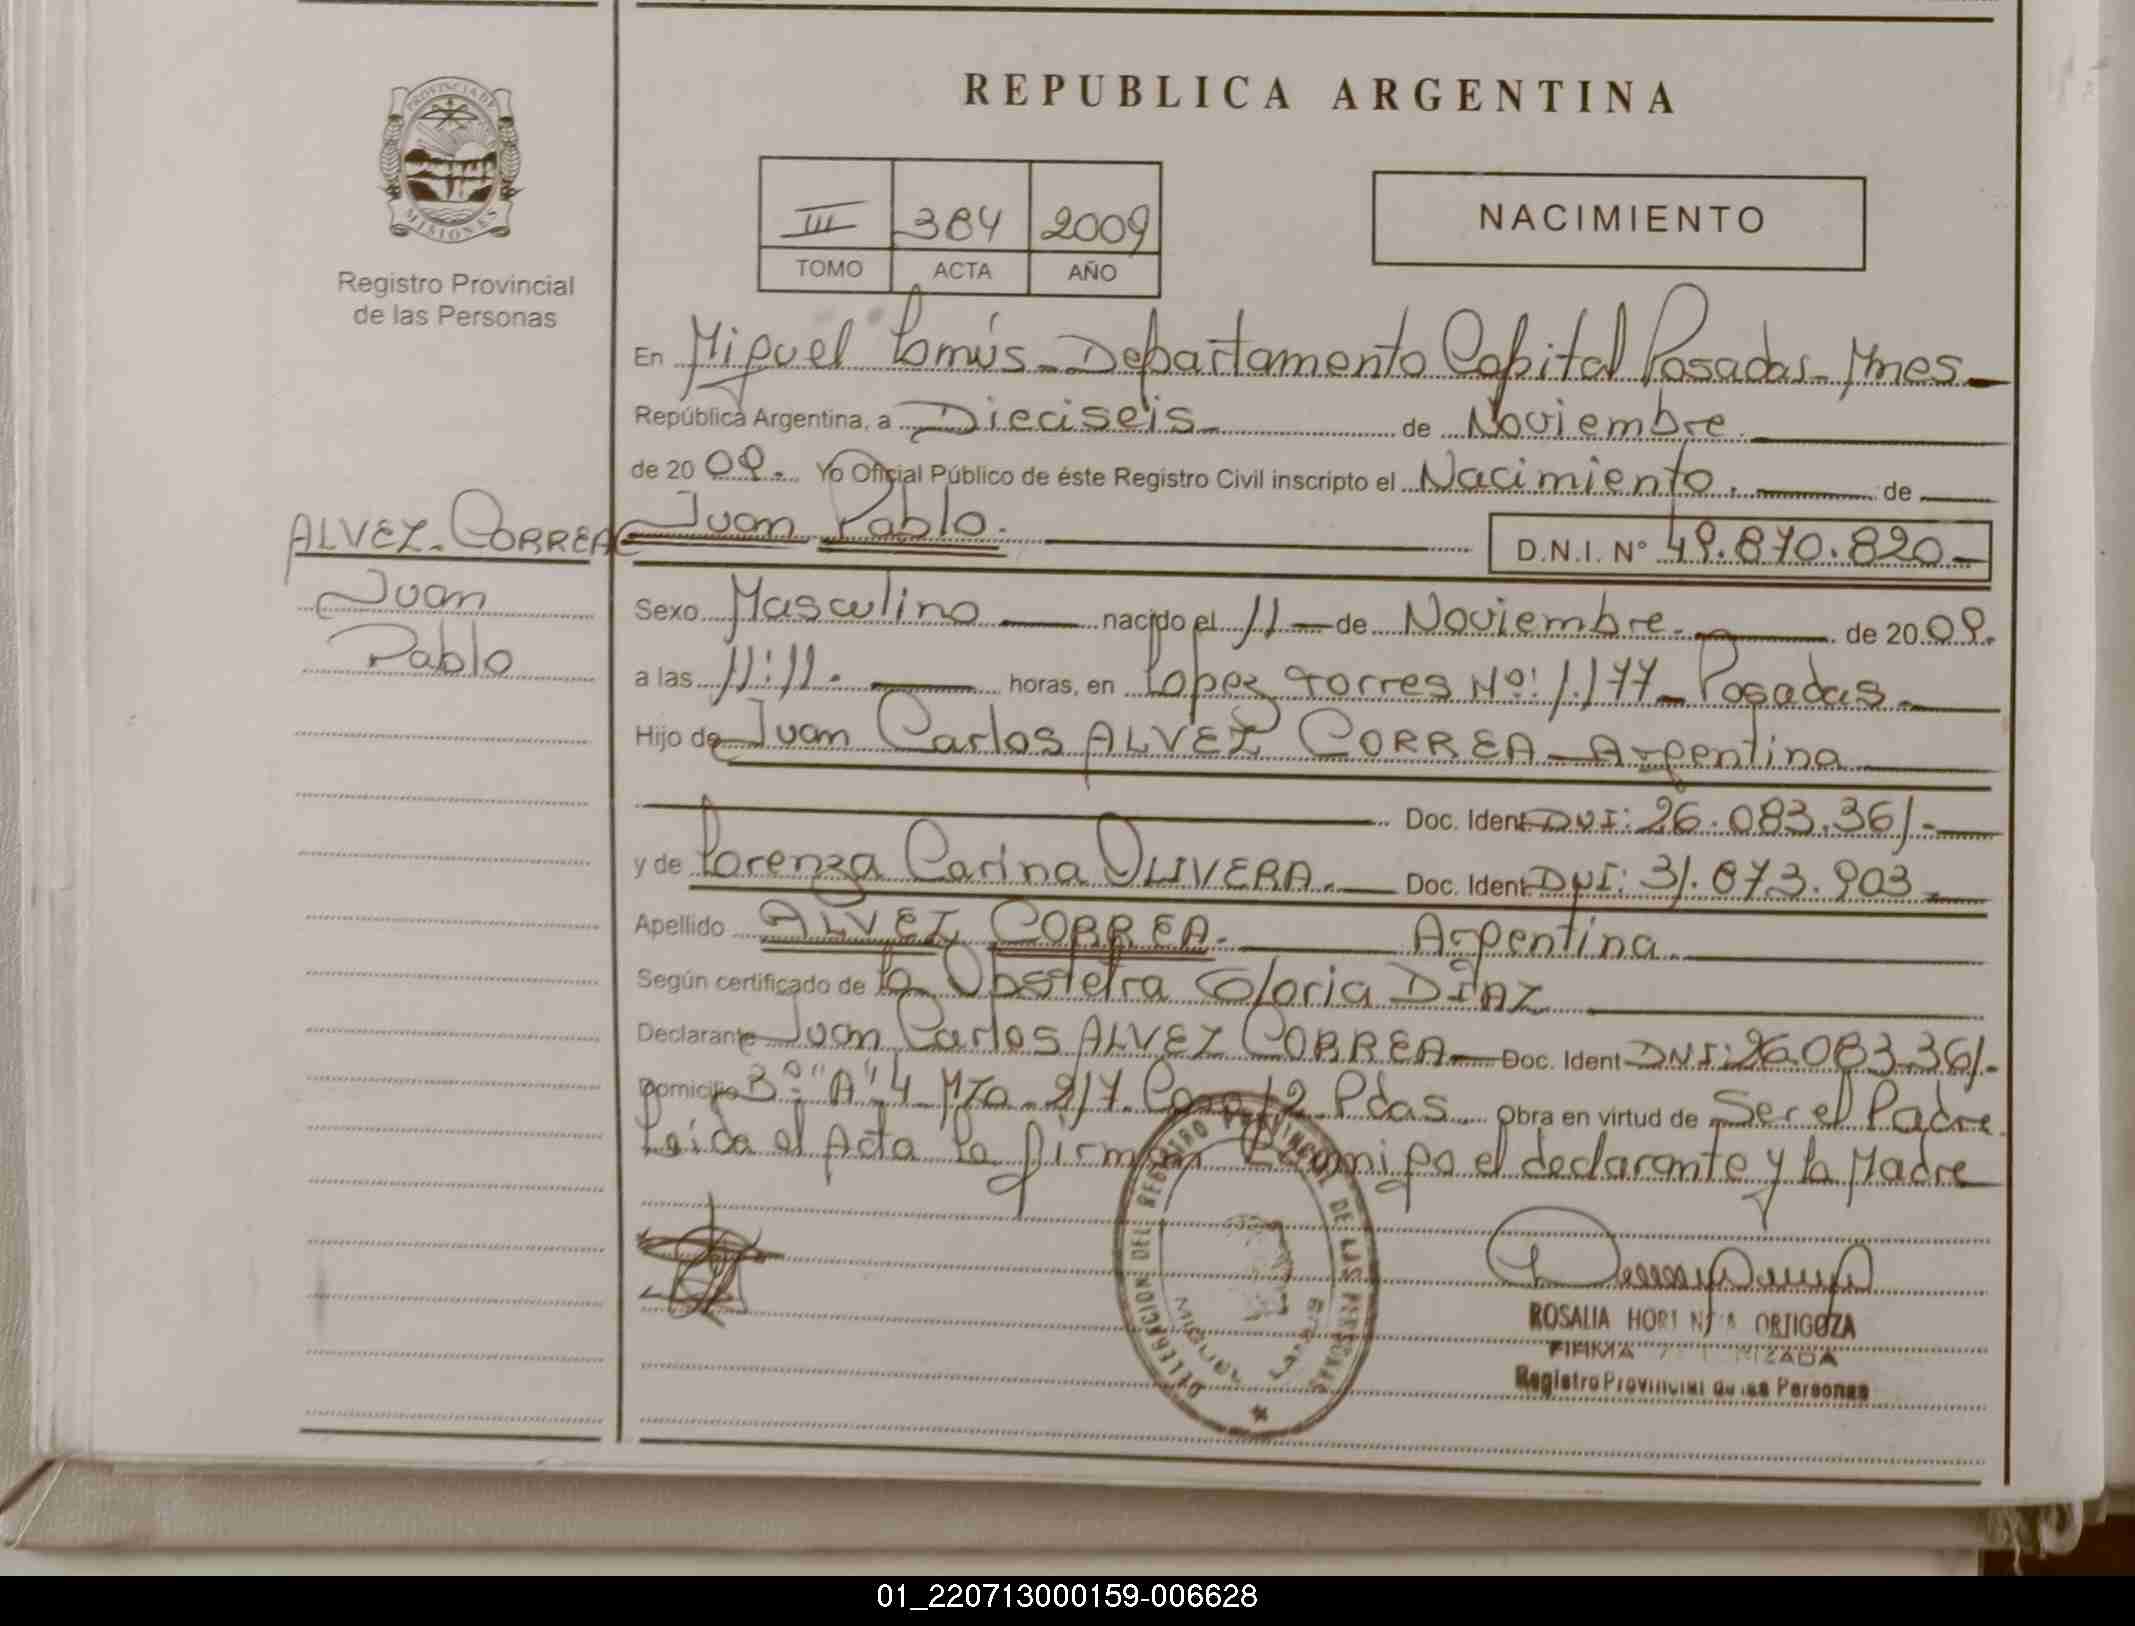 REPUBLICA ARGENTINA
PROVINCIA DE
MISIONES
Registro Provincial
de las Personas
III 384 2009
TOMO ACTA AÑO
NACIMIENTO
En Miguel Lanús - Departamento Capital Posadas - Mnes -
República Argentina, a Dieciseis - de Noviembre
de 20 09. Yo Oficial Público de éste Registro Civil inscripto el Nacimiento. de
Juan Pablo.
D.N.I. Nº 49.870.820 -
ALVEZ - CORREA
Juan
Pablo
Sexo Masculino nacido el 11 de Noviembre. de 20 09.
a las 11:11. horas, en Lopez Torres Nº: 1.177 - Posadas -
Hijo de Juan Carlos ALVEZ CORREA - Argentina
Doc. Ident DNI: 26.083.361 -
y de Lorenza Carina OLIVERA. Doc. Ident DNI: 31.073.903 -
Apellido ALVEZ CORREA. Argentina
Según certificado de la Obstetra Gloria DIAZ
Declarante Juan Carlos ALVEZ CORREA - Doc. Ident DNI: 26.083.361 -
Domicilio Bº "A" 4 Mza 217 Casa 12 Pdas Obra en virtud de Ser el Padre
Leída el Acta la firman Conmigo el declarante y la Madre
DELEGACION DEL REGISTRO PROVINCIAL DE LAS PERSONAS
ROSALIA HORTENSIA ORTIGOZA
FIRMA AUTORIZADA
Registro Provincial de las Personas
01_220713000159-006628